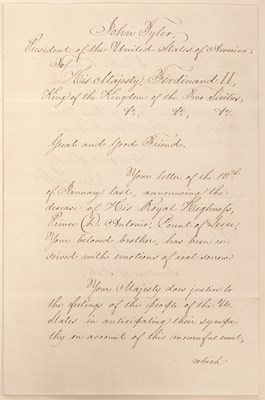 John Tyler,
President of the United States of America.
To
His Majesty Ferdinand II,
King of the Kingdom of the Two Sicilies,
&c, &c, &c.
Great and Good Friend.
Your letter of the 12th
of January last, announcing the
decease of His Royal Highness,
Prince Antonio, Count of Lecce,
Your beloved brother, has been re-
ceived with emotions of real sorrow
Your Majesty does justice to
the feelings of the people of the Ud.
States in anticipating their sympa
thy on account of this mournful event,
which